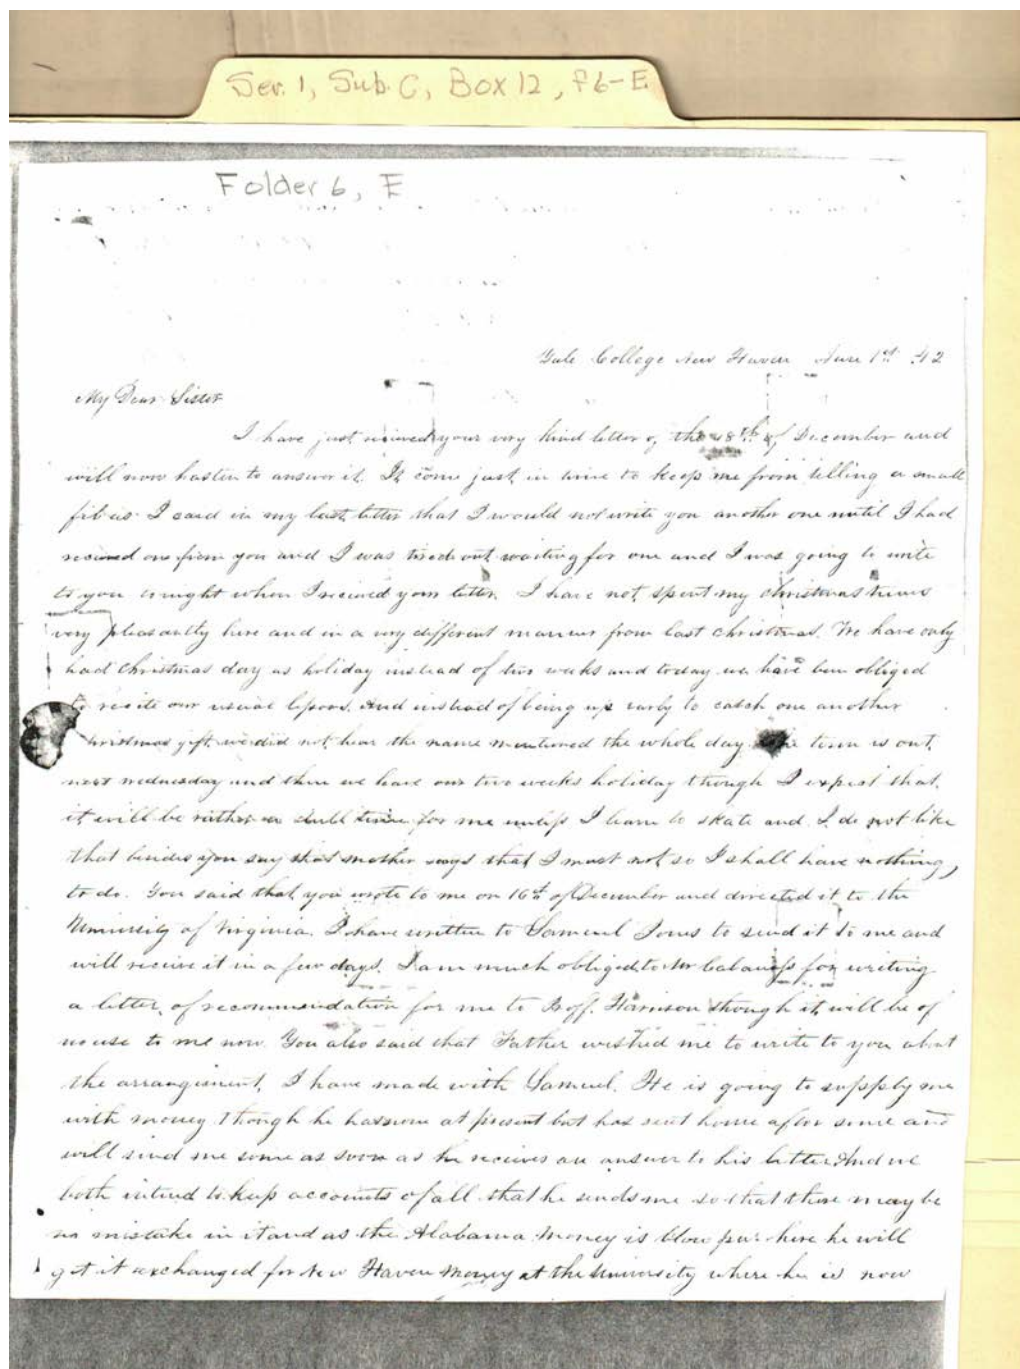 Ser. 1, Sub. C, Box 12, F6-E
Folder 6, E
Yale College New Haven 1st 42
My Dear Sister
I have just recieved your very kind letter of the 28th of December and
will now hasten to answer it. It come just in time to keep me from telling a small
fib as I said in my last letter that I would not write you another one until I had
recieved one from you and I was tired out waiting for one and I was going to write
to you tonight when I recieved your letter. I have not spent my christmas times
very pleasantly here and in a very different manner from last christmas. We have only
had Christmas day as holiday instead of two weeks and today we have been obliged
to recite our usual lessons. And instead of being up early to catch one another
christmas gift we did not hear the name mentioned the whole day. The term is out
next wednesday and then we have our two weeks holiday though I expect that
it will be rather a dull time for me unless I learn to skate and I do not like
that besides you say that mother says that I must not so I shall have nothing
to do. You said that you wrote to me on 16th of December and directed it to the
University of Virginia. I have written to Samuel Jones to send it to me and
will recieve it in a few days. I am much obliged to Mr for writing
a letter of recommendation for me to Proff. Harrison though it will be of
no use to me now. You also said that Father wished me to write to you about
the arrangement I have made with Samuel. He is going to supply me
with money though he has none at present but has sent home after some and
will send me some as soon as he receives an answer to his letter. And we
both intend to keep accounts of all that he sends me so that there may be
no mistake in it and as the Alabama Money is blow par here he will
get it exchanged for New Haven Money at the University where he is now